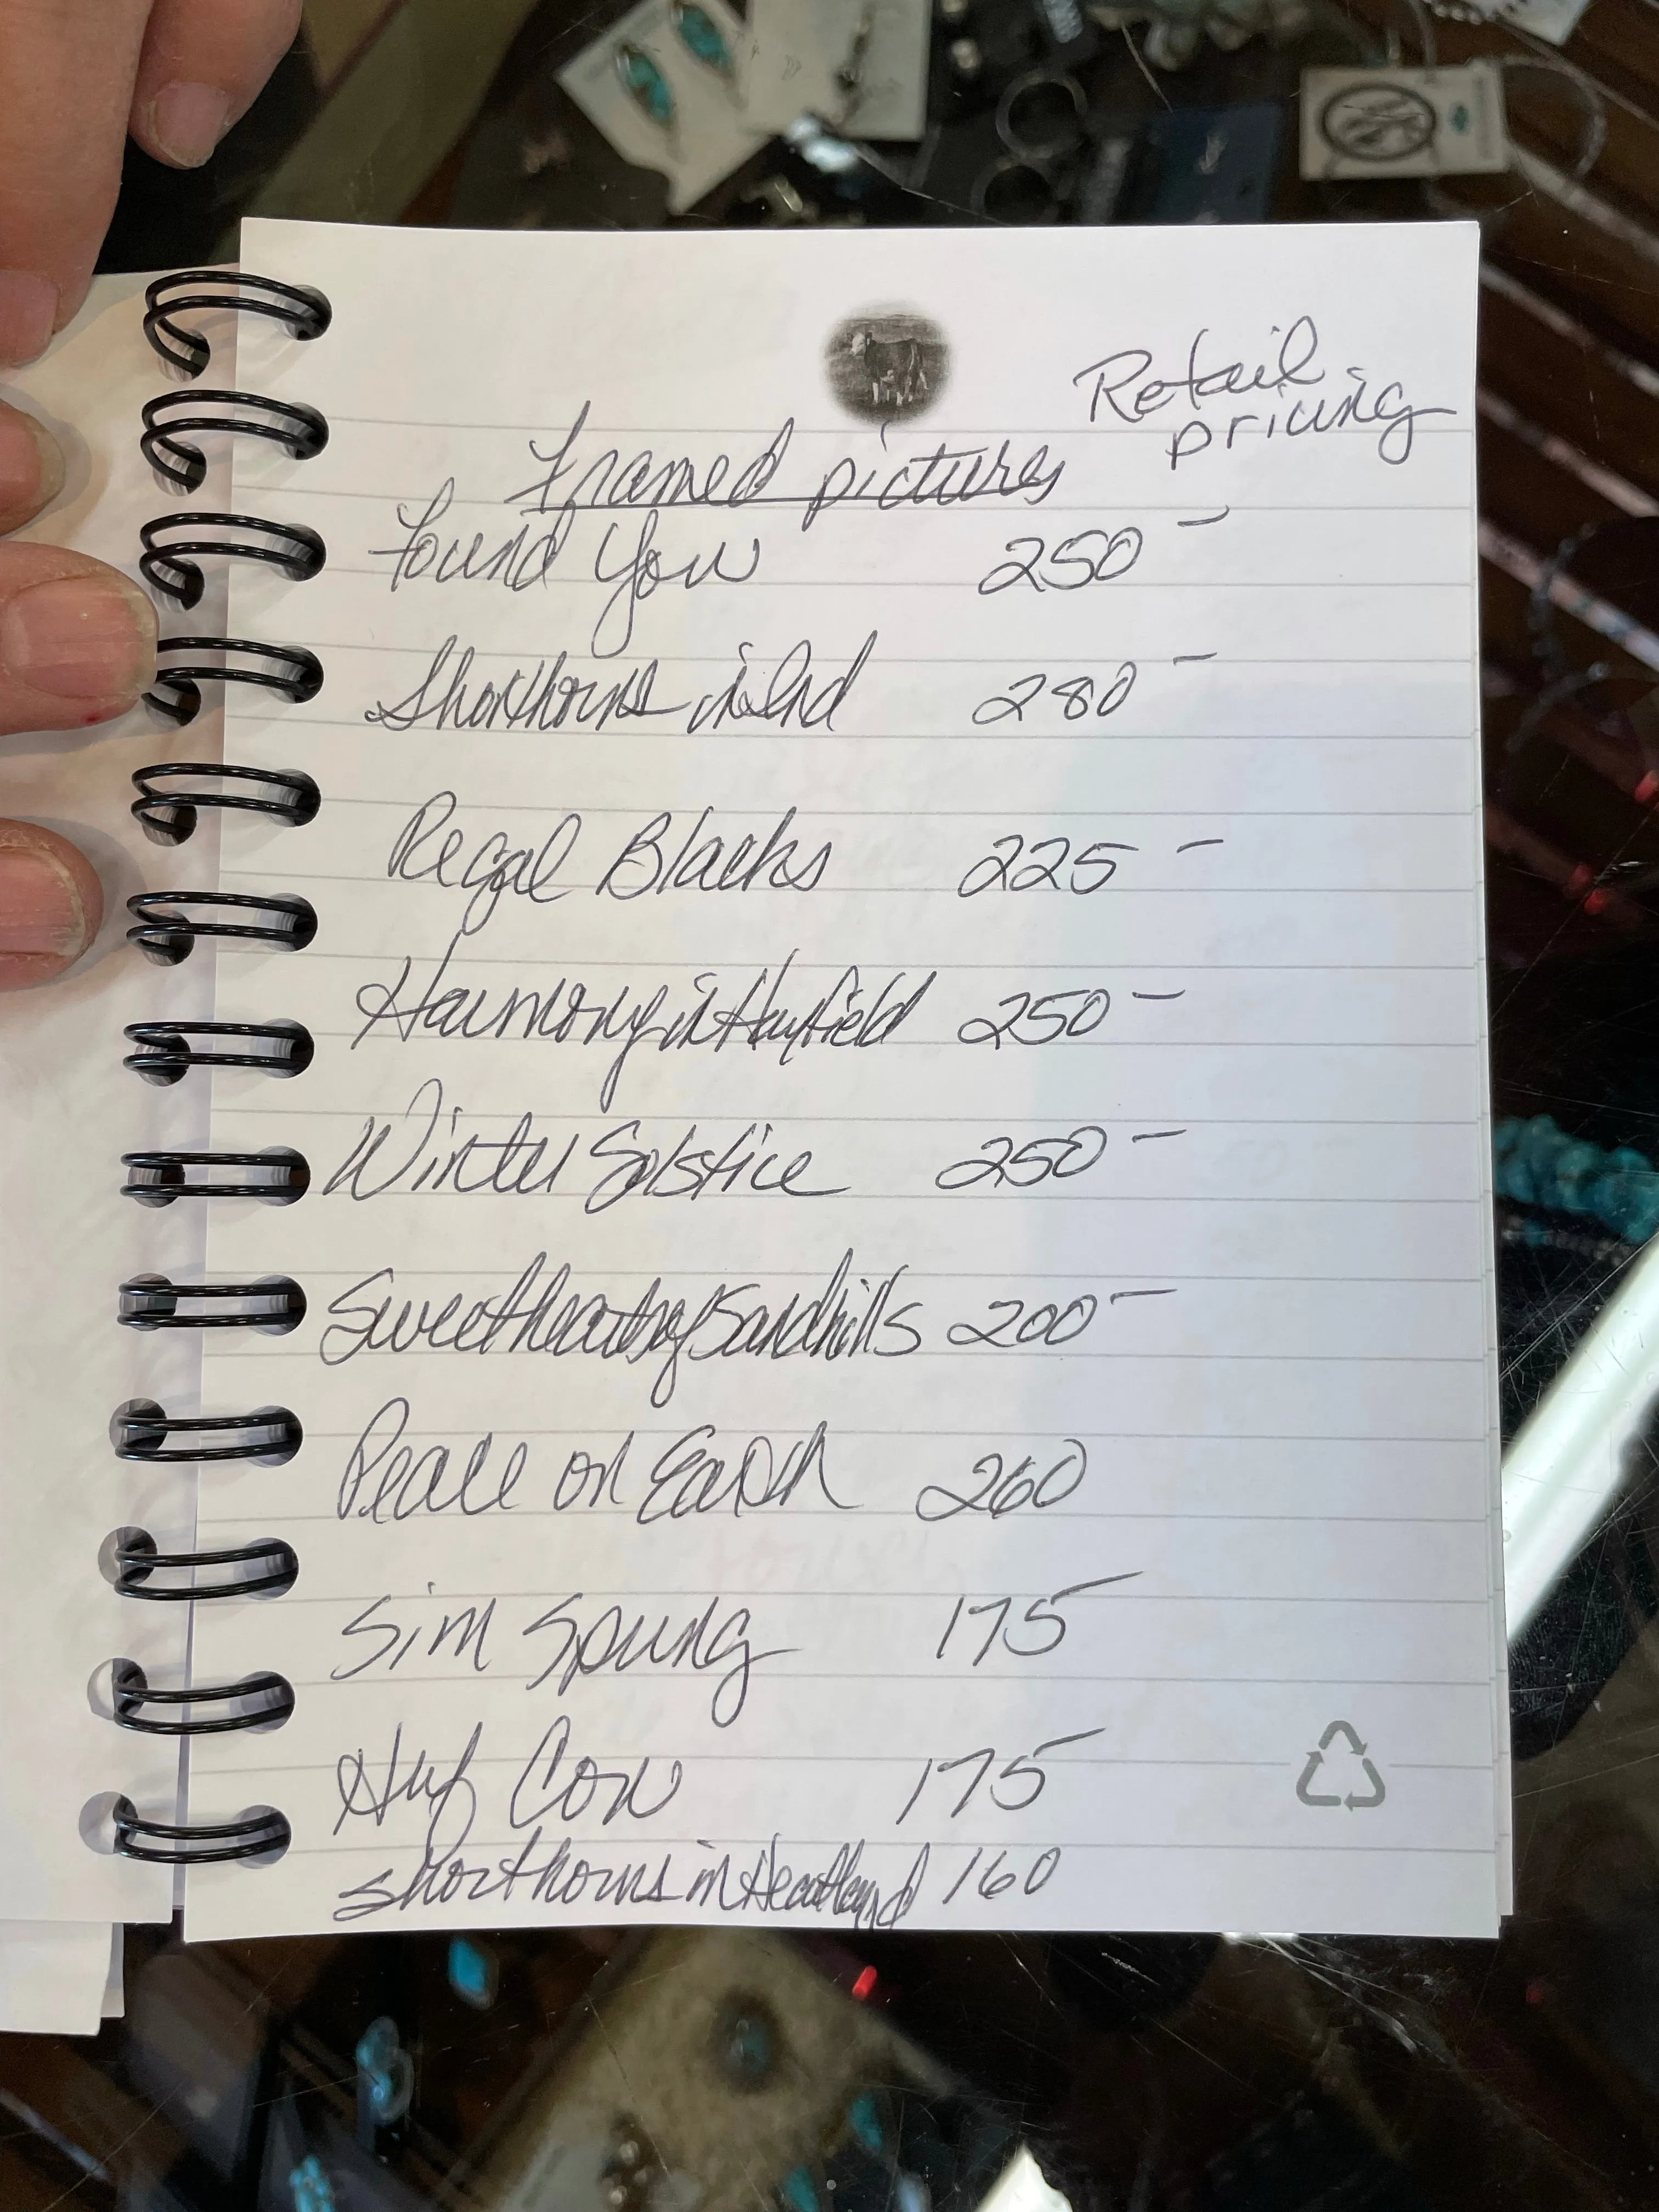 Retail
pricing
Framed pictures
Found You 250 -
Shorthorns in Ind 280 -
Regal Blacks 225 -
Harmony in Hayfield 250 -
Winter Solstice 250 -
Sweethearts of Sandhills 200 -
Peace on Earth 260
Sim Spring 175 -
Cow 175 -
Shorthorns in Heartland 160